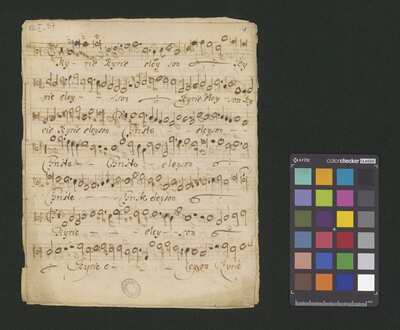 Kyrie Kyrie eley son Ky
rie eley - - son Kyrie eley son Ky
rie Kyrie eleyson Christe - eleyson
Christe - - Christe eleyson
Christe - - Christe eleyson
Kyrie - - eley - son
Kyrie e - - leyson Kyrie
x-rite
colorchecker CLASSIC